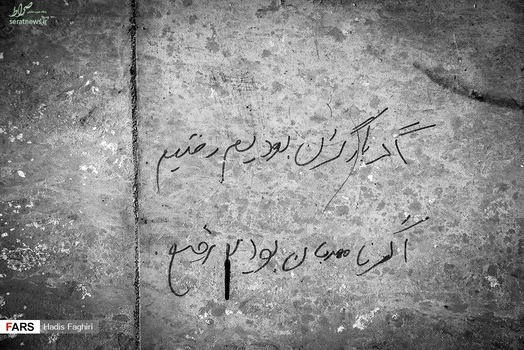 صراط
seratnews.ir
اگر بارگران بودیم رفتیم
اگر نامهربان بودیم رفتیم
FARS Hadis Faghiri